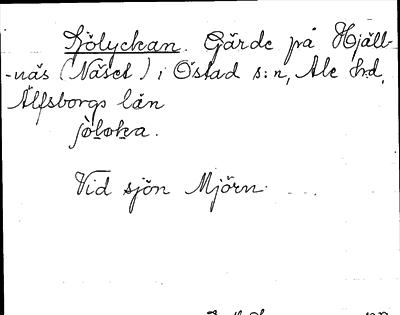 Sjölyckan. Gärde på Hjäll-
-näs (Näset) i Östad s:n, Ale hd,
Älfsborgs län
Vid sjön Mjörn.